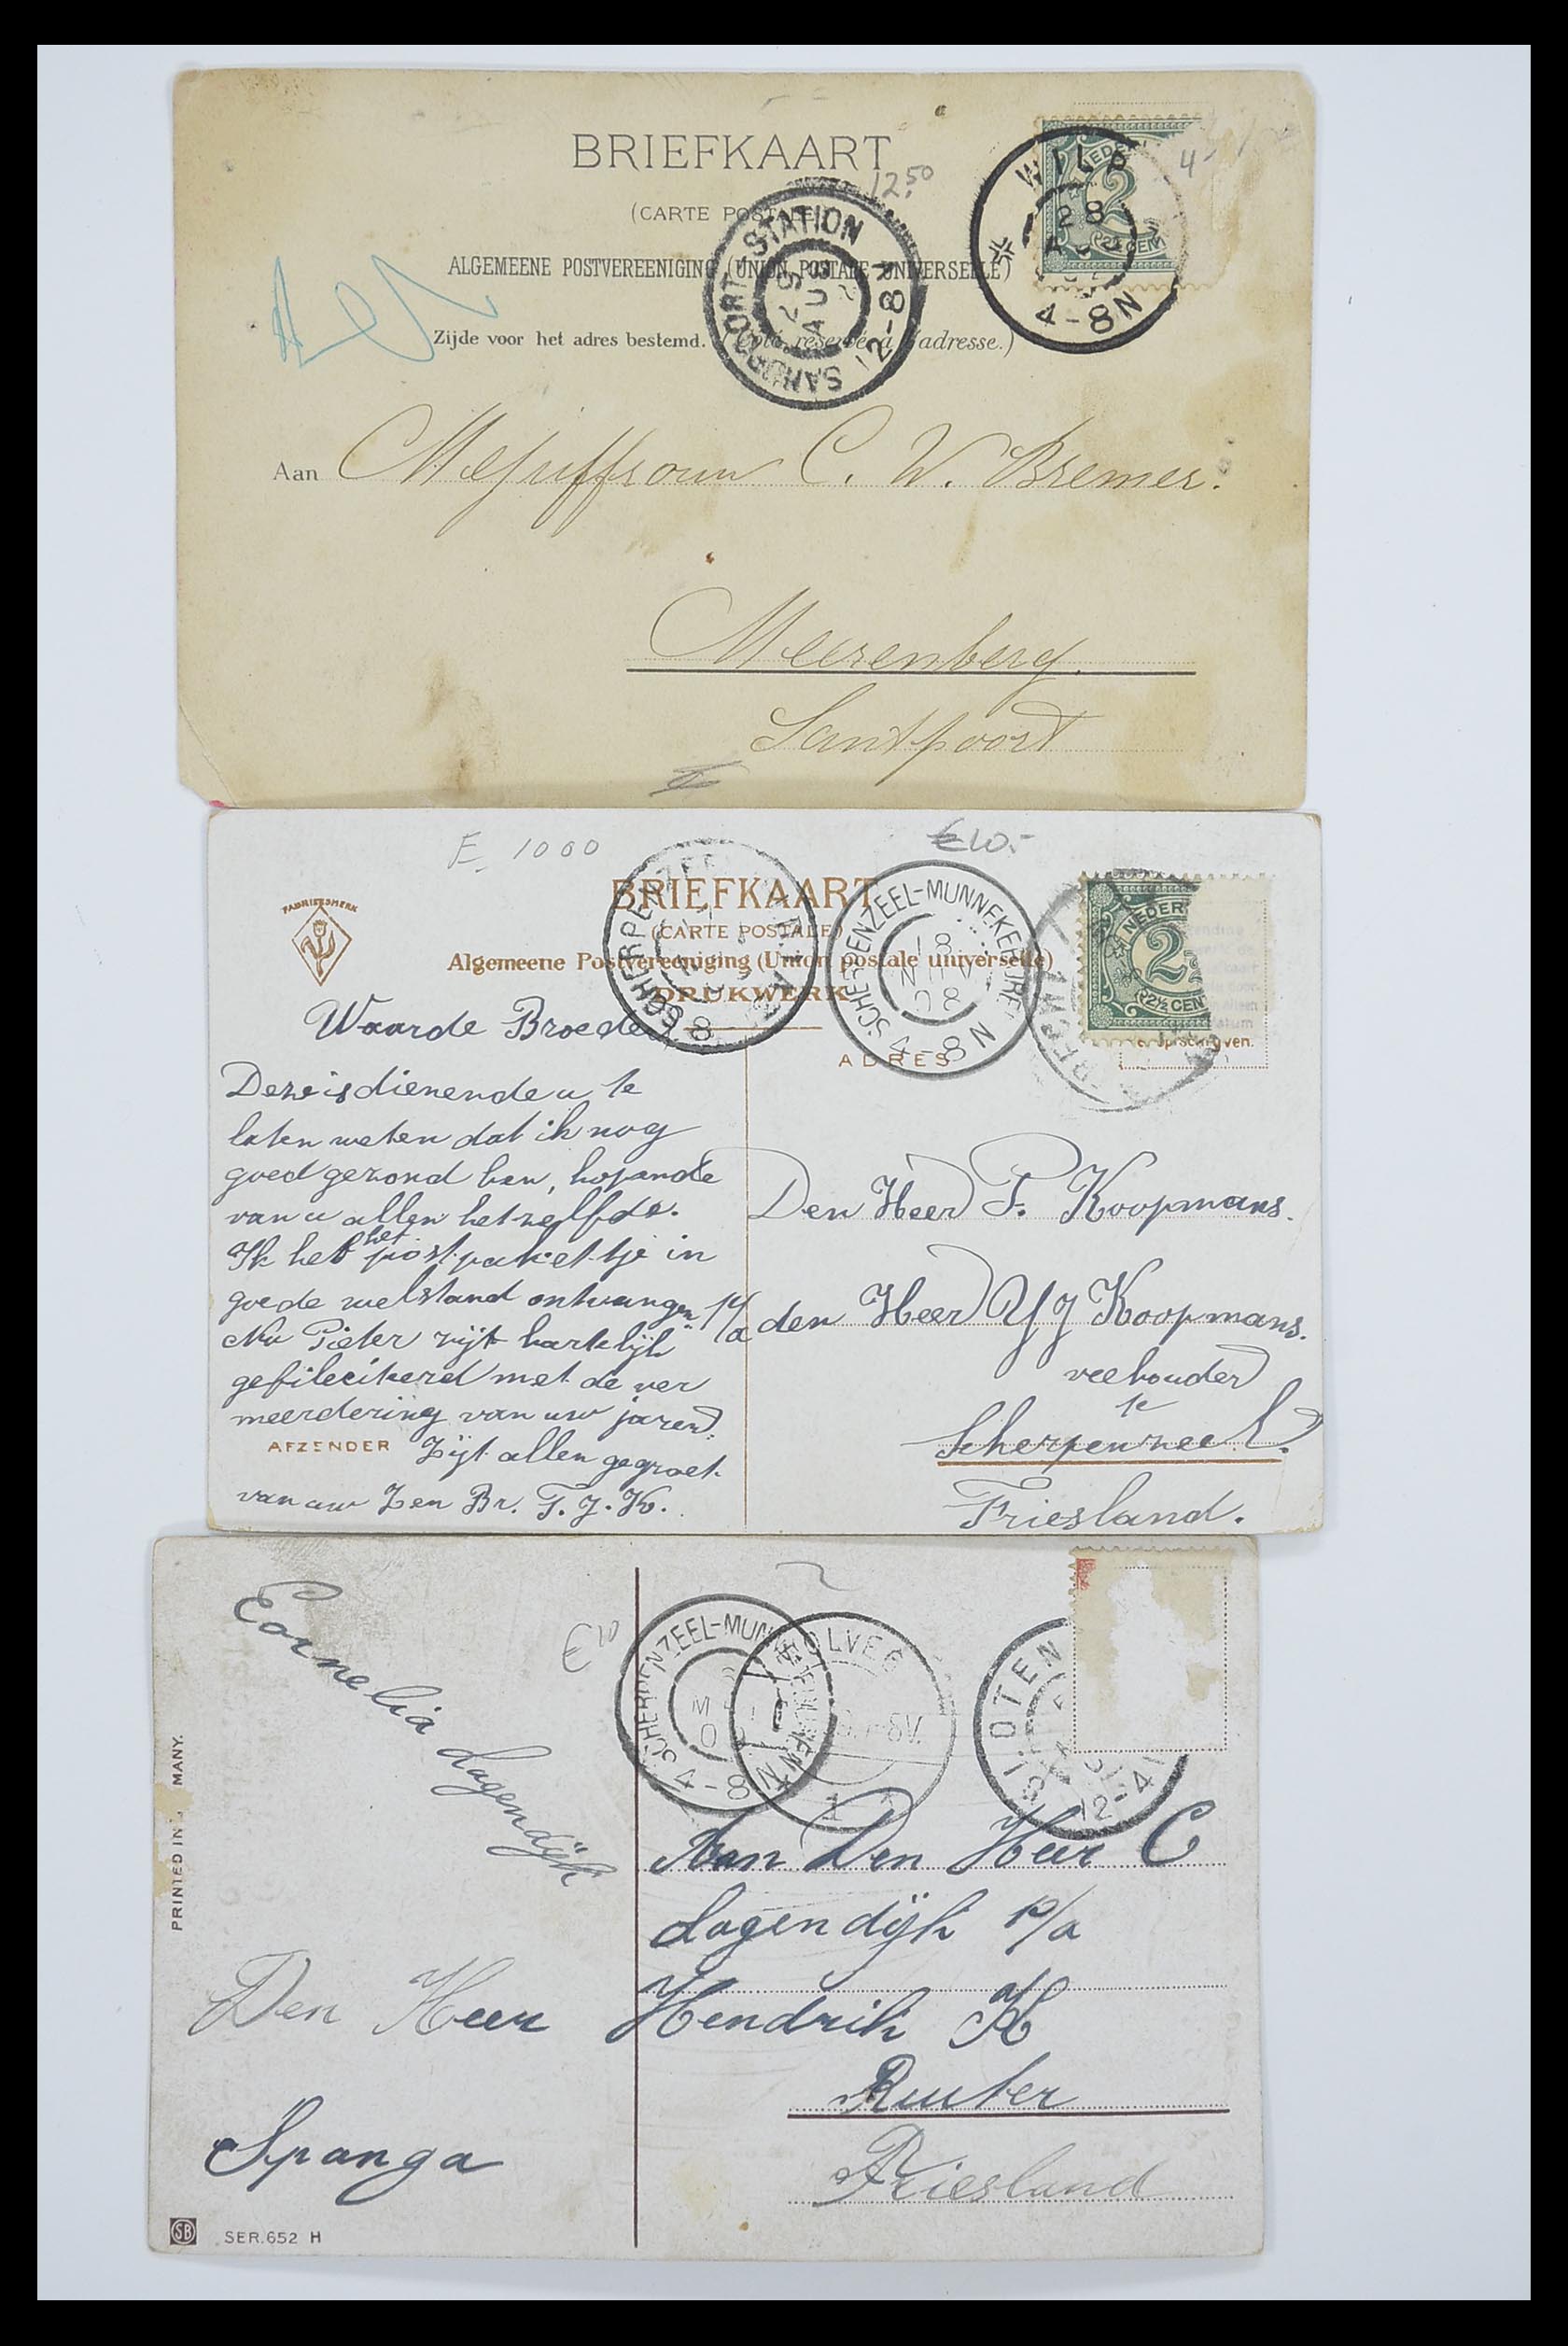 BRIEFKAART
12.50
4-
(CARTE POSTALE)
ALGEMEENE POSTVEREENIGING (UNION POSTALE UNIVERSELLE)
Zijde voor het adres bestemd. (Côté réservé à l'adresse.)
SANTPOORT-STATION
29
AUG
12-8V
WILP
28
4-8N
NEDER
2
2½ CEN
Aan Mejuffrouw C. W. Bremer.
Meerenberg.
Santpoort
E 1000
€10.-
FABRIEKSMERK
BRIEFKAART
(CARTE POSTALE)
Algemeene Postvereeniging (Union postale universelle)
DRUKWERK
SCHERPENZEEL
SCHERPENZEEL-MUNNEKEBURE
18
08
4-8N
NEDER
2
2½ CENT
ADRES
Waarde Broeder
Deze is dienende u te
laten weten dat ik nog
goed gezond ben, hopende
van u allen hetzelfde.
Ik heb het postpaketje in
goede welstand ontvangen.
Nu Pieter zijt hartelijk
gefileciterd met de ver
meerdering van uw jaren.
AFZENDER Zijt allen gegroet
van uw Zen Br. T. J. K.
Den Heer P. Koopmans.
p/a den Heer YJ Koopmans.
veehouder
te
Scherpenzeel.
Friesland.
€10
SCHERPENZEEL-MUNNEKEBUREN
4-8N
WOLVEGA
8V.
1
SLOTEN
12-4
Cornelia Lagendijk
Aan Den Heer C
Lagendijk p/a
Den Heer Hendrik K
Ruiter
Spanga
Friesland
PRINTED IN MANY.
SB
SER. 652 H